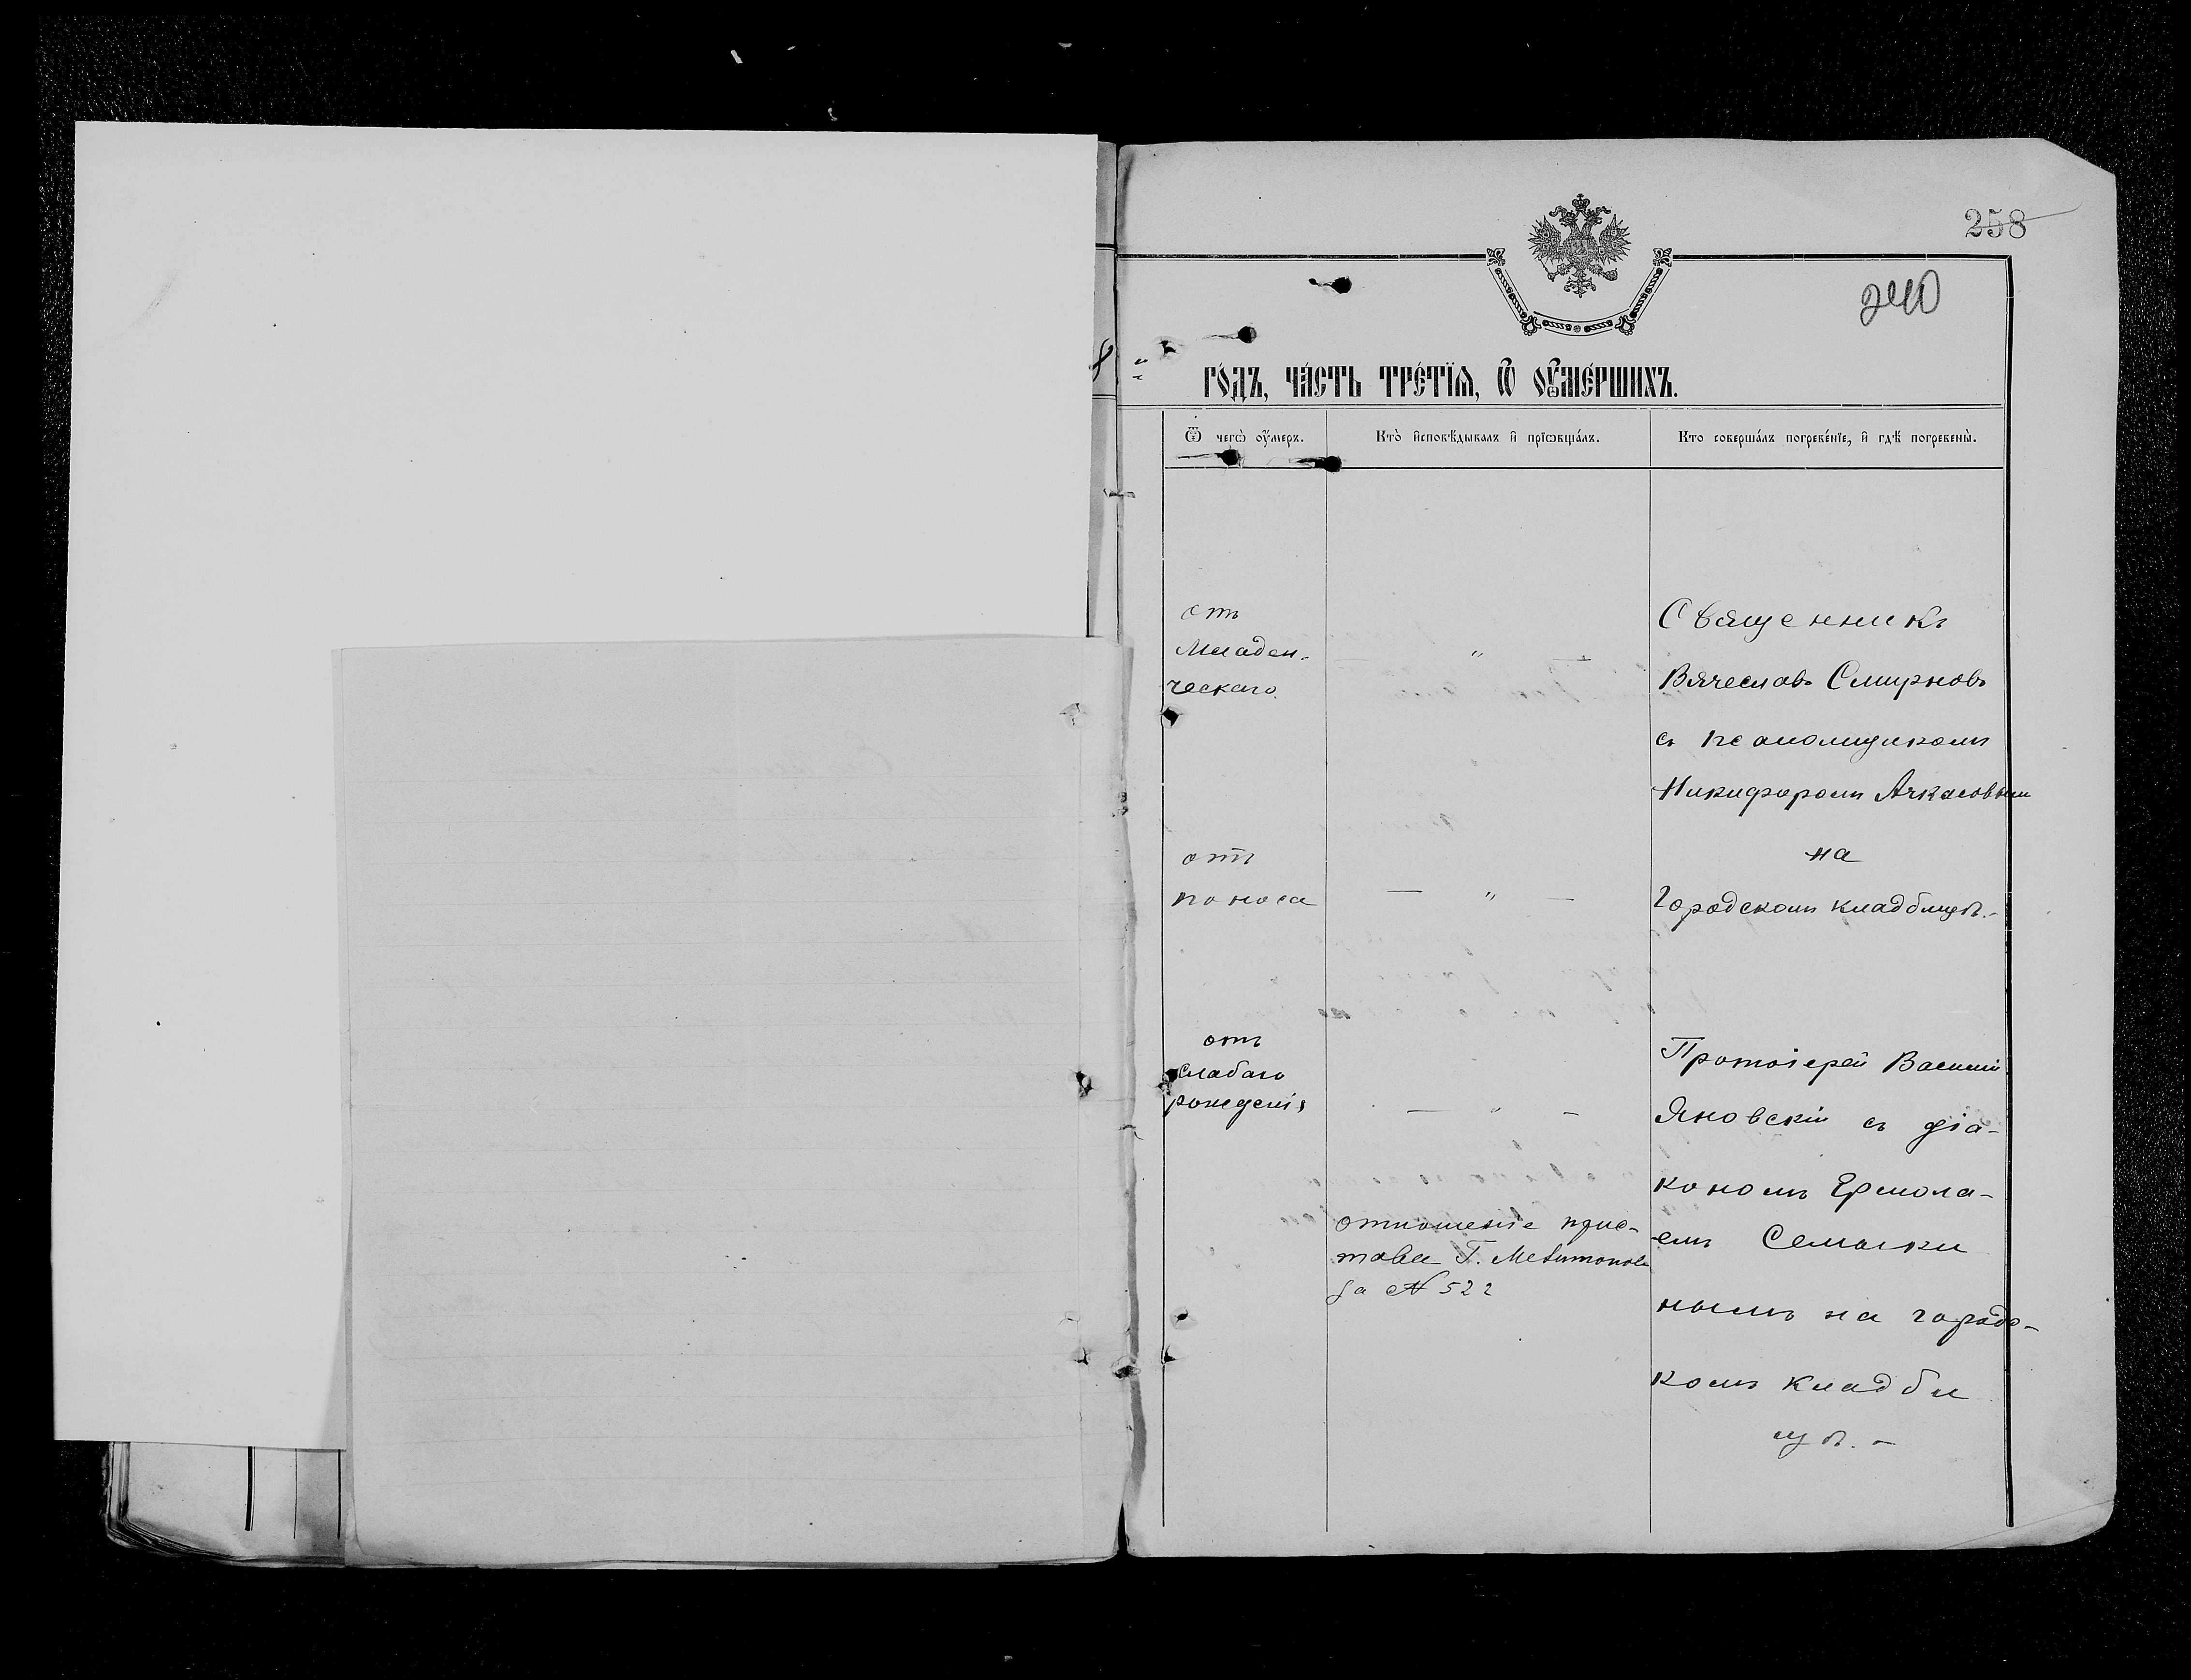 258
240
го́дъ, ча́сть тре́тїѧ, ѡ҆ ᲂу҆ме́ршихъ.
Ѿ чегѡ̀ ᲂу҆́меръ.
Кто̀ и҆сповѣ́дывалъ и҆ прїѡбща́лъ.
Кто соверша́лъ погребе́нїе, и҆ гдѣ̀ погребены̀.
отъ
Младен-
ческаго
— " —
Священникъ
Вячеславъ Смирновъ
съ псаломщикомъ
Никифоромъ Ачкасовымъ
на
Городскомъ кладбищѣ.-
отъ
поноса
— " —
отъ
слабаго
рожденія
— " —
Протоіерей Василій
Яновскій съ діа-
кономъ Ермола-
емъ Семашки
нымъ на городс-
комъ кладби
щѣ. -
отношеніе прис-
тава Г.
за № 522